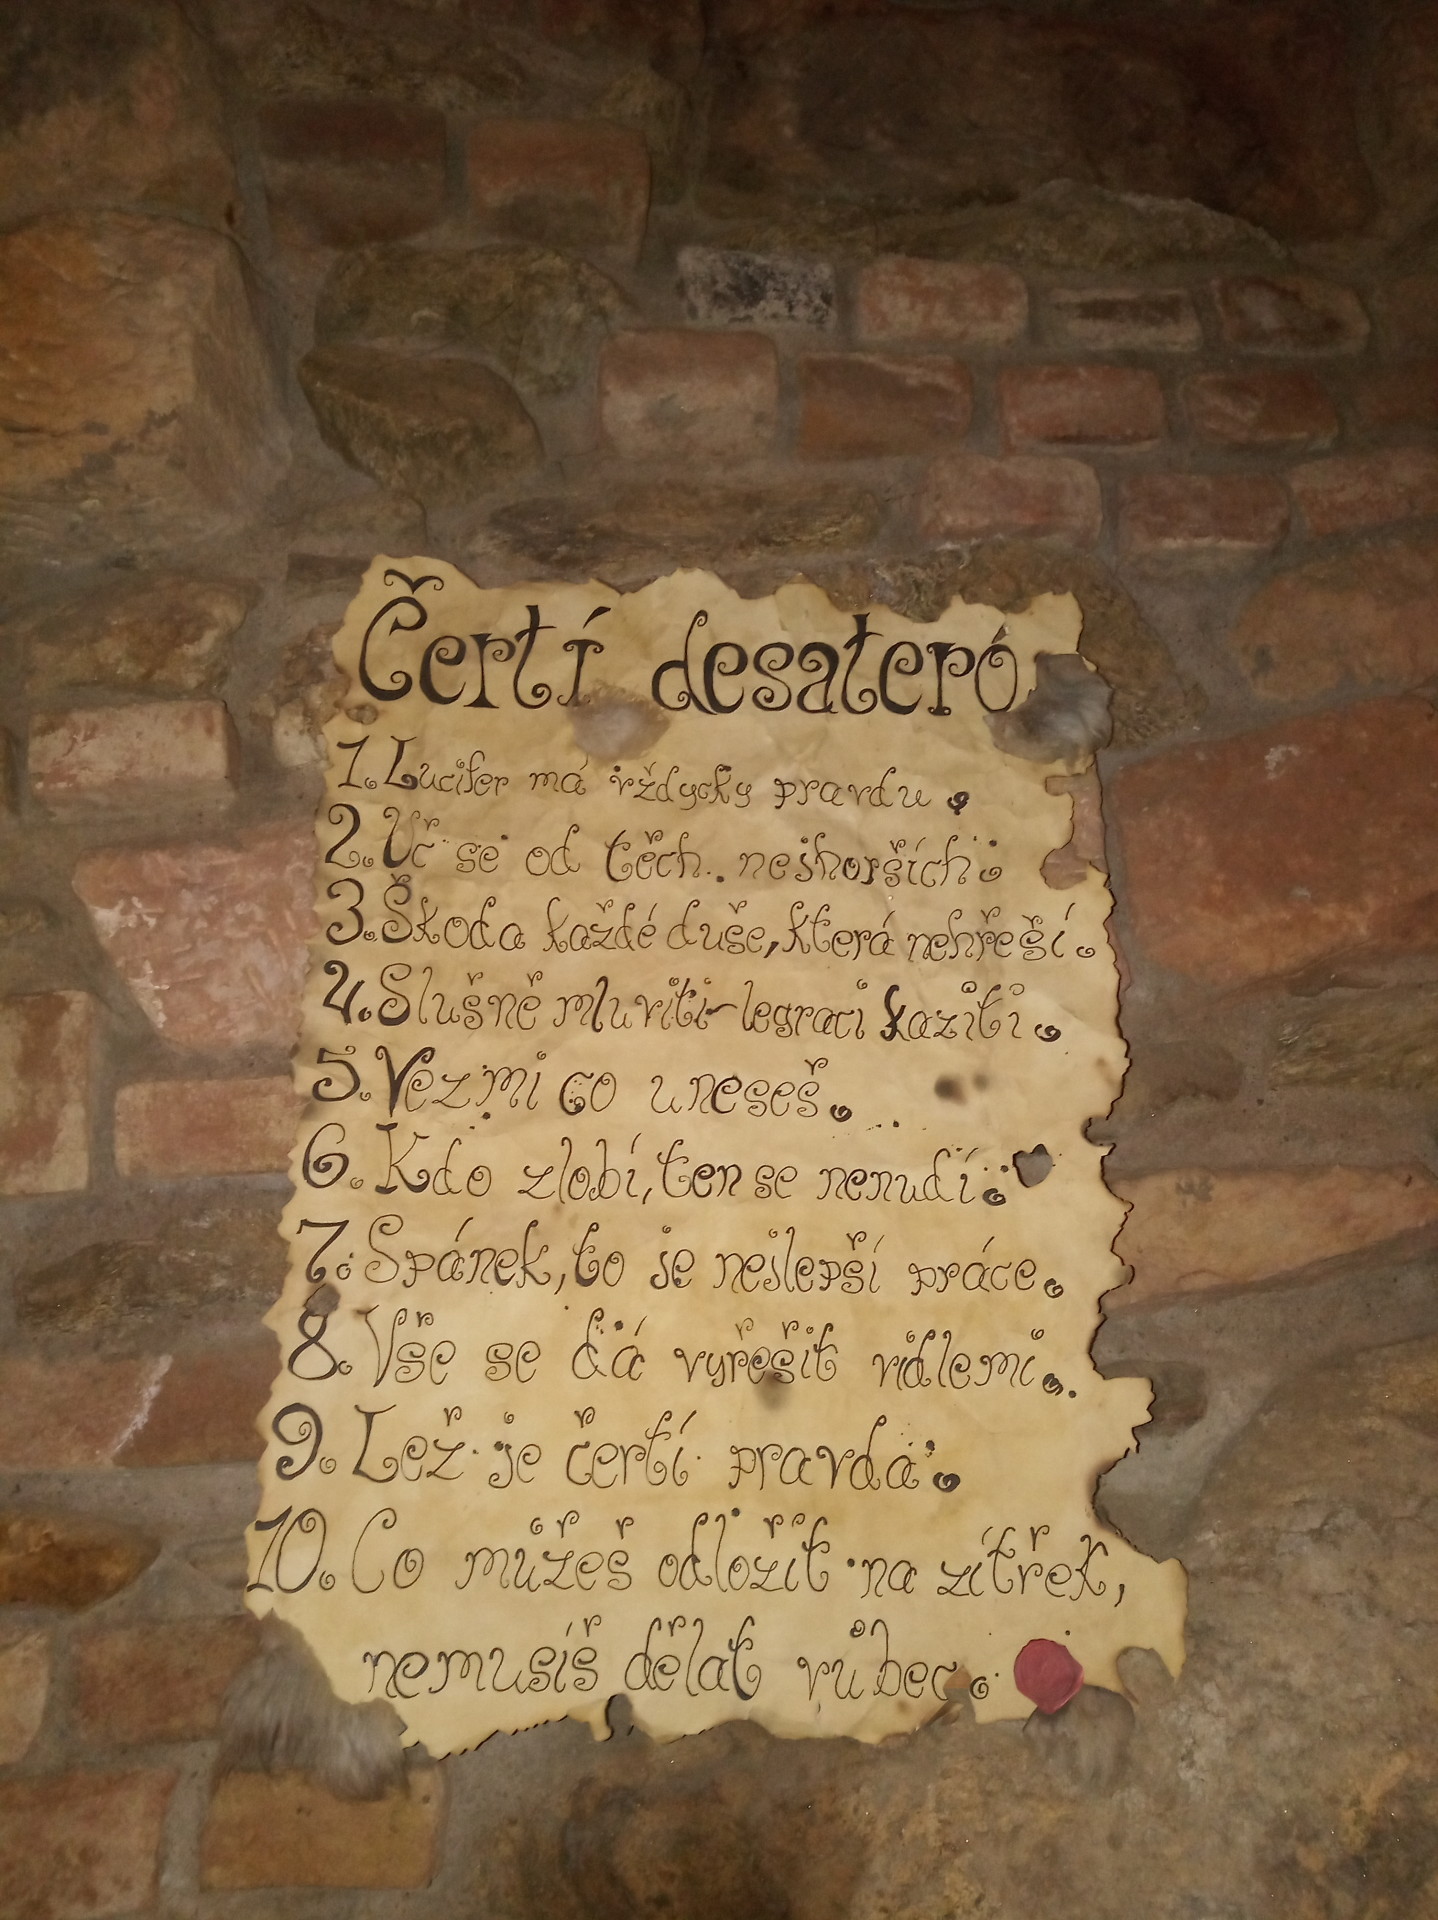 Čertí desatero
1. Lucifer má vždycky pravdu.
2. Uč se od těch nejhorších.
3. Škoda každé duše, která nehřeší.
4. Slušně mluviti - legraci kaziti.
5. Vezmi co uneseš.
6. Kdo zlobí, ten se nenudí.
7. Spánek, to je nejlepší práce.
8. Vše se dá vyřešit vidlemi.
9. Lež je čertí pravda.
10. Co můžeš odložit na zítřek,
nemusíš dělat vůbec.